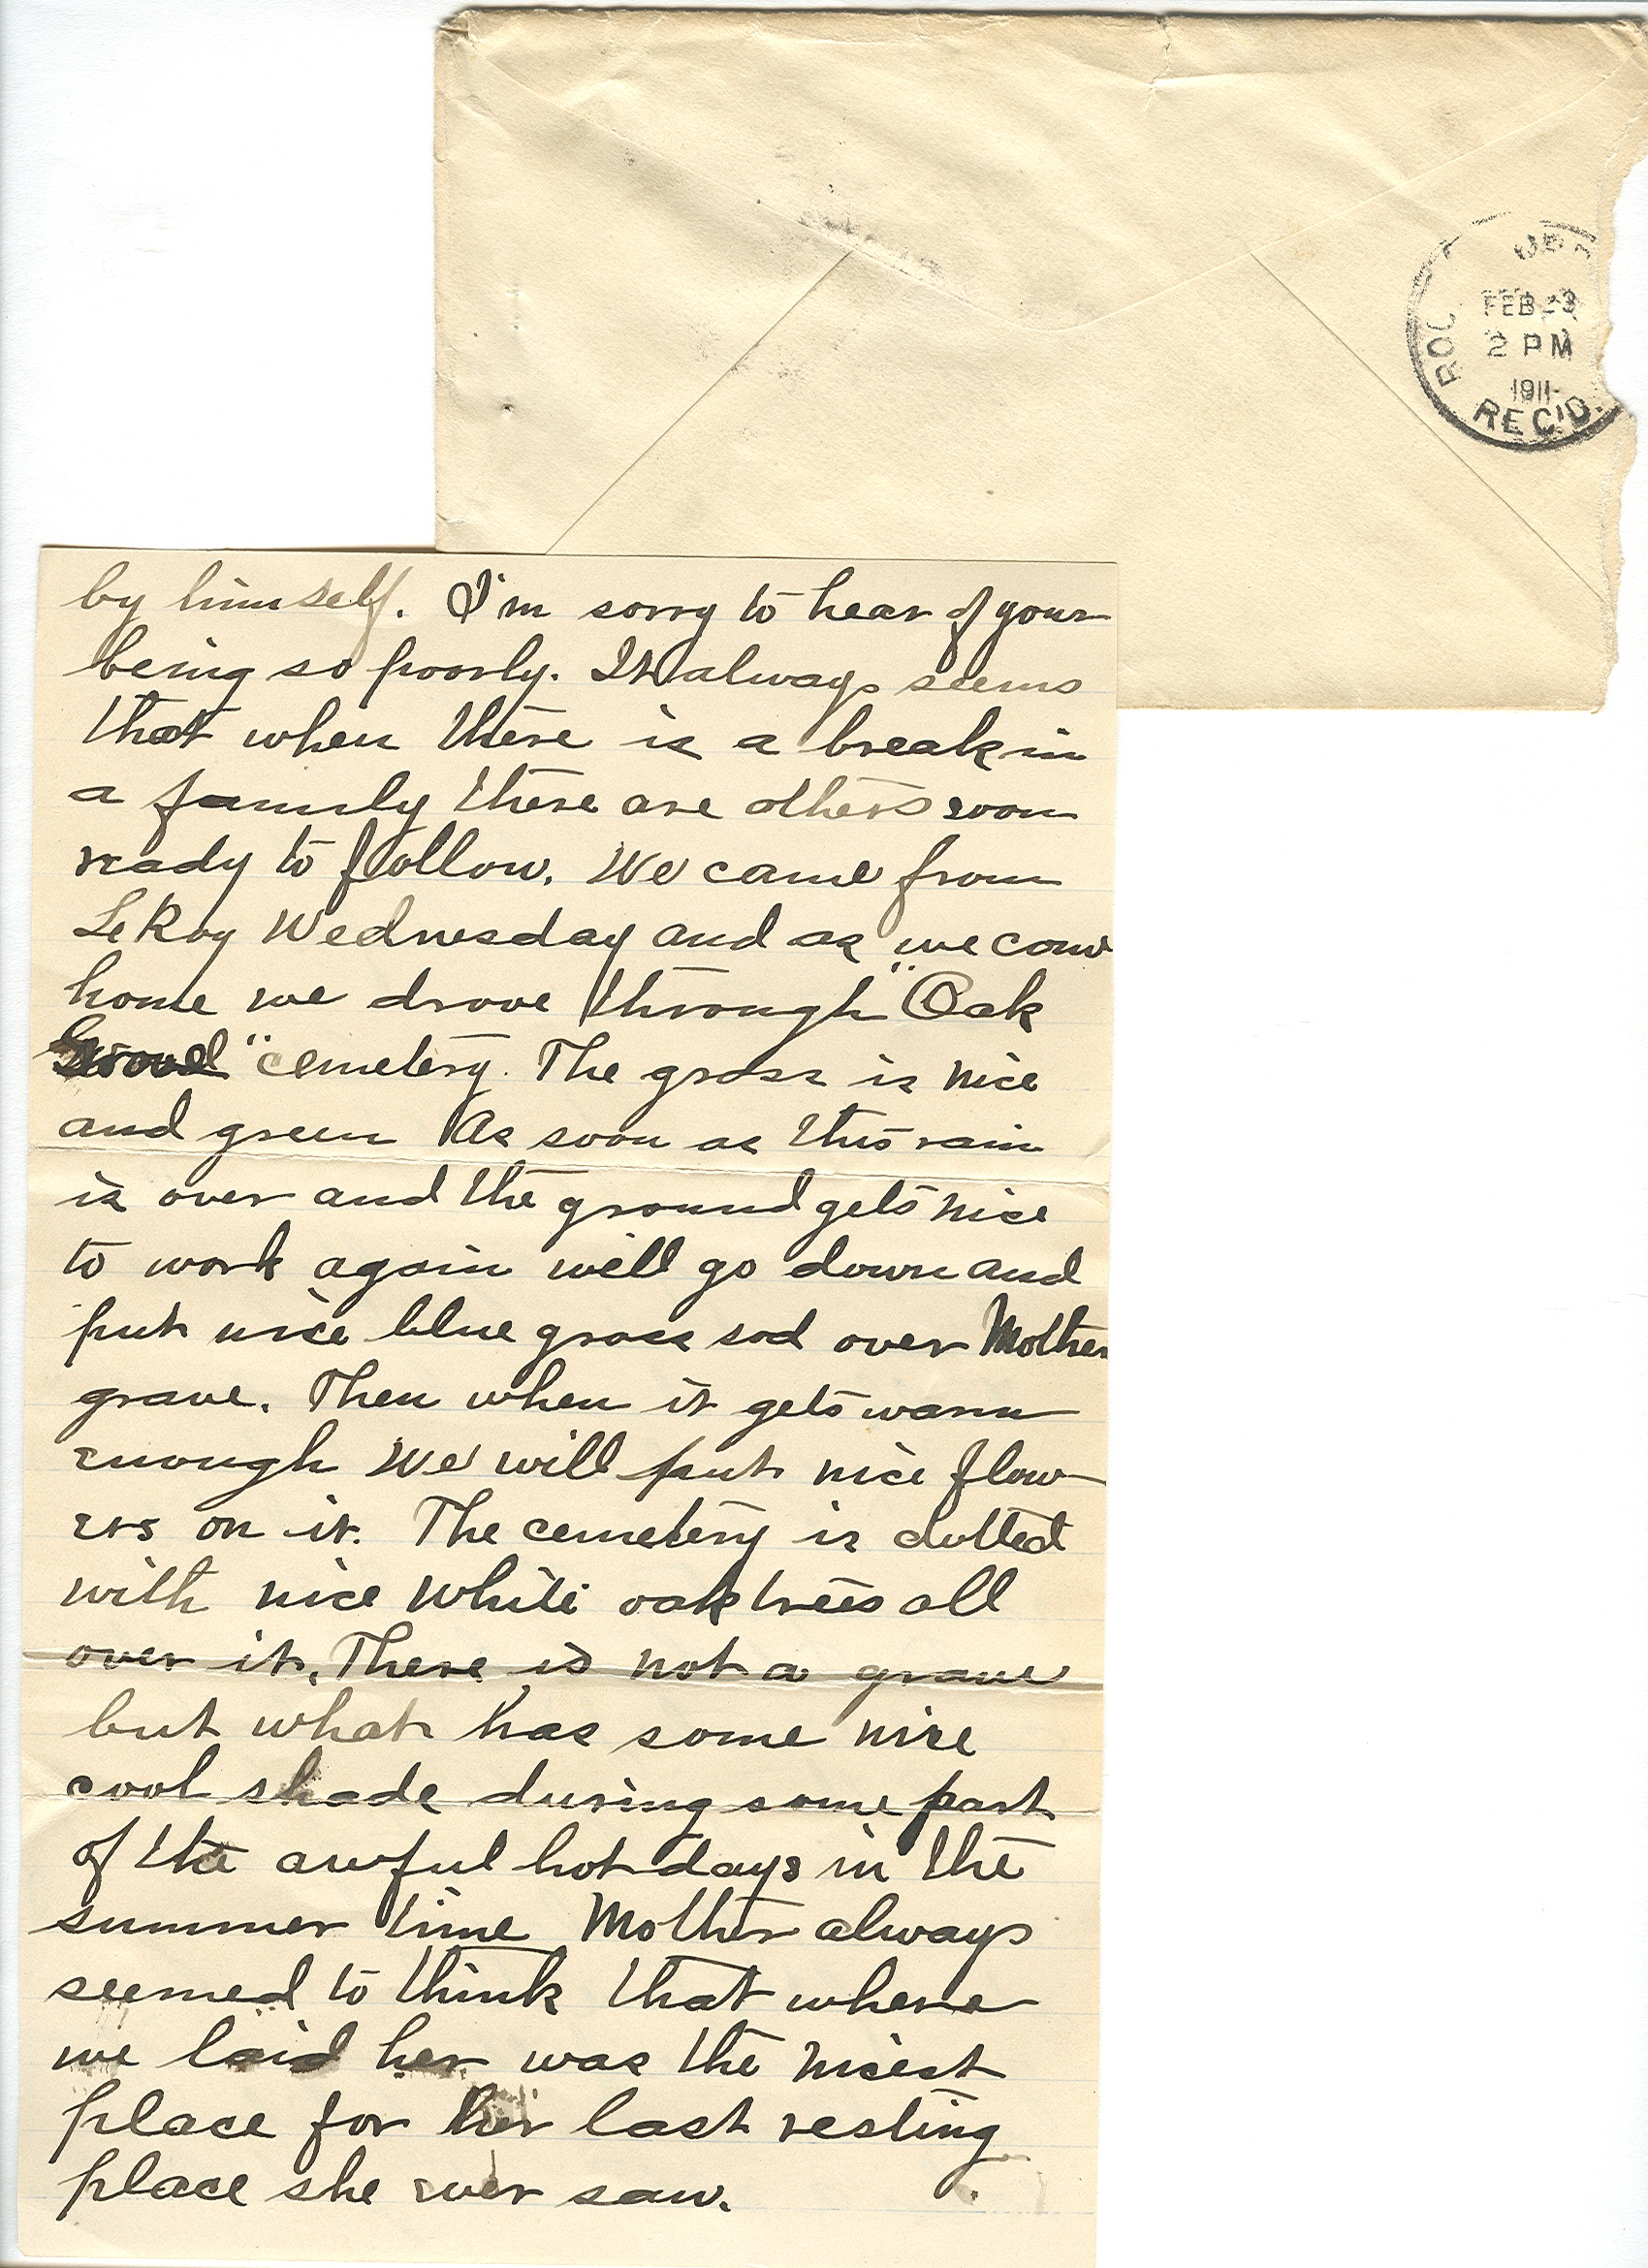 FEB 23
2 PM
1911
REC'D.
by himself. I'm sorry to hear of your
being so poorly. It always seems
that when there is a break in
a family there are others soon
ready to follow. We came from
LeRoy Wednesday and as we com
home we drove through "Oak
Grove" cemetery. The grass is nice
and green As soon as this rain
is over and the ground gets nice
to work again will go down and
put nice blue grass sod over Mother
grave. Then when it gets warm
enough We will put nice flow
ers on it. The cemetery is dotted
with nice white oak trees all
over it. There is not a grave
but what has some nice
cool shade during some part
of the awful hot days in the
summer time Mother always
seemed to think that where
we laid her was the nicest
place for her last resting
place she ever saw.